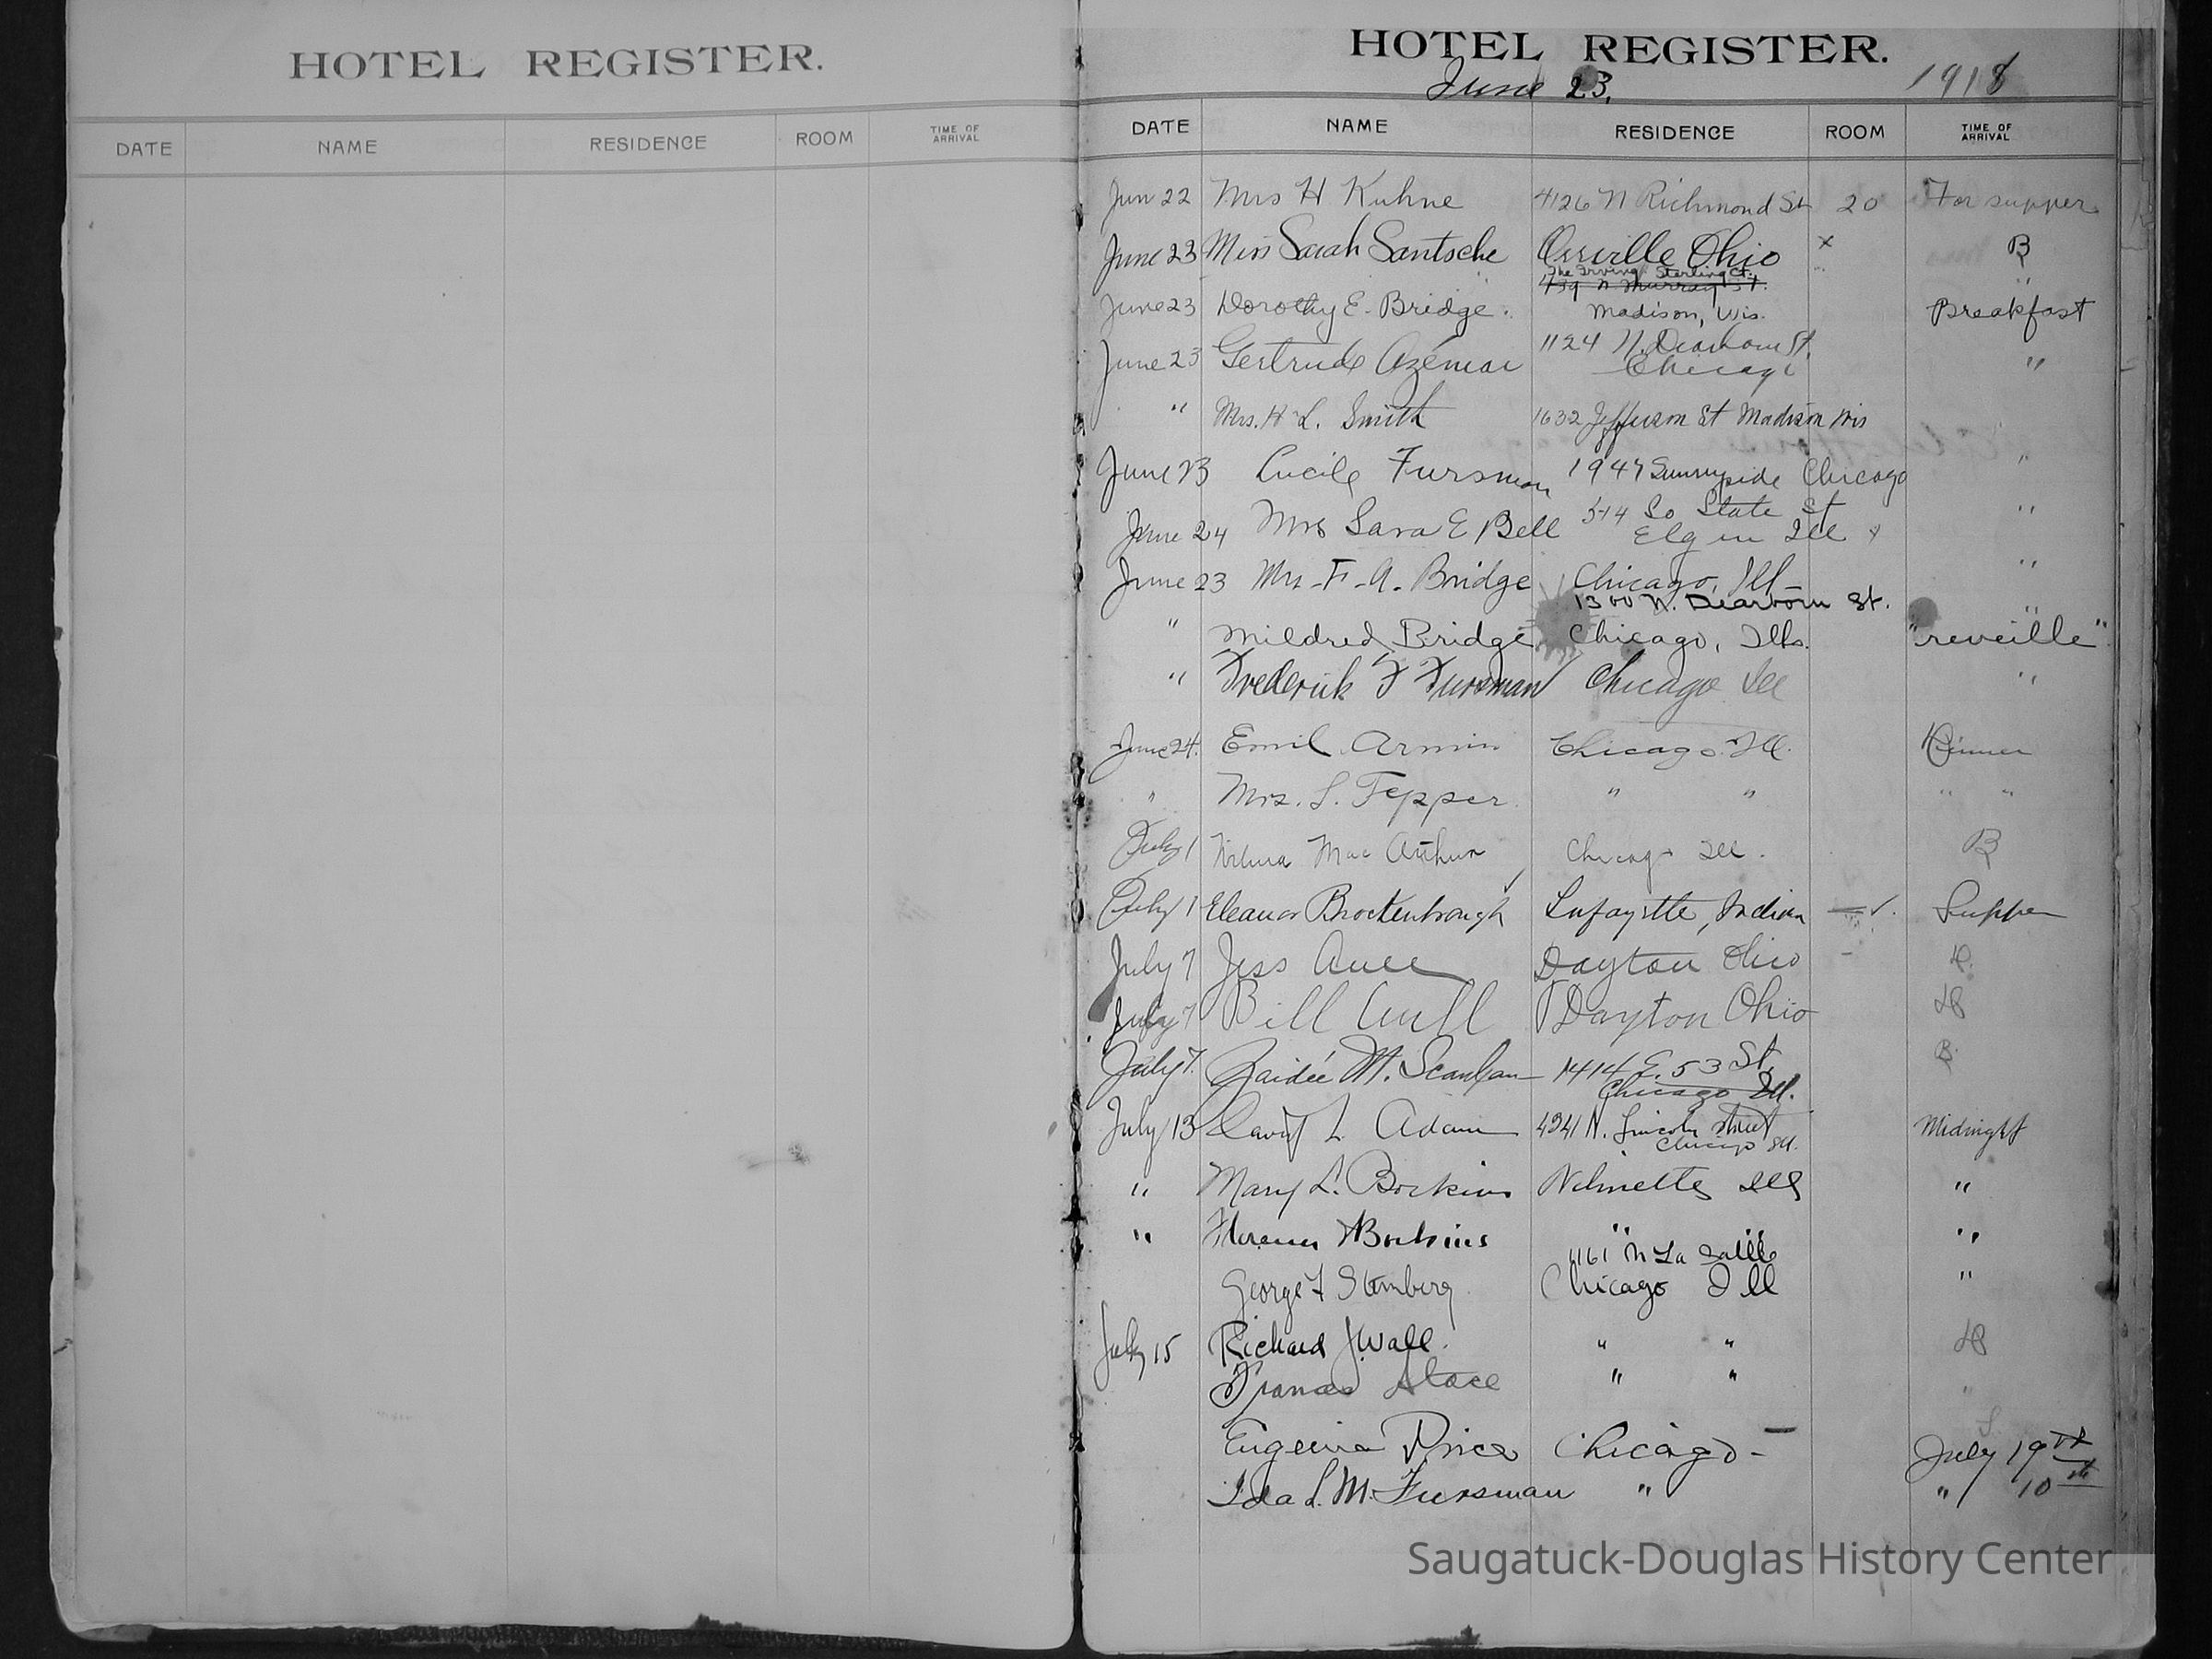 HOTEL REGISTER.
DATE NAME RESIDENCE ROOM TIME OF ARRIVAL
HOTEL REGISTER.
June 23, 1918
DATE NAME RESIDENCE ROOM TIME OF ARRIVAL
Jun 22 Mrs H Kuhne 4126 N Richmond St 20 For supper
June 23 Miss Sarah Santsche Orrville Ohio x B
The Irving Sterling Ct.
439 N Murray St.
June 23 Dorothy E. Bridge. Madison, Wis. Breakfast
1124 N. Dearborn St.
June 23 Gertrude Azémar Chicago "
" Mrs. H L. Smith 1632 Jefferson St Madison Wis
June 23 Lucile Fursman 1947 Sunnyside Chicago "
514 So State St "
June 24 Mrs Sara E Bell Elgin Ill
June 23 Mrs F. A. Bridge Chicago, Ill "
1300 N. Dearborn St.
" Mildred Bridge Chicago, Ills. "reveille"
" Frederick F Fursman Chicago Ill "
June 24. Emil Armin Chicago. Ill. Dinner
" Mrs. L. Tepper " " " "
July 1 Mac Arthur Chicago Ill. B
July 1 Eleanor Brockenbrough Lafayette, Indiana Supper
July 7 Jess Aull Dayton Ohio
July 7 Bill Aull Dayton Ohio
July 7. Zaidée M. Scanlan 1414 E. 53 St. B.
Chicago Ill.
July 13 David L Adam 4341 N. Lincoln Street Midnight
Chicago Ill.
" Mary L. Wilmette Ill "
" Florence " " "
1161 N La Salle
George F Chicago Ill "
July 15 Richard J Wall. " "
Frances " " "
Eugenia Price Chicago - July 19
Ida L. M. Fursman " " 10th
Saugatuck-Douglas History Center